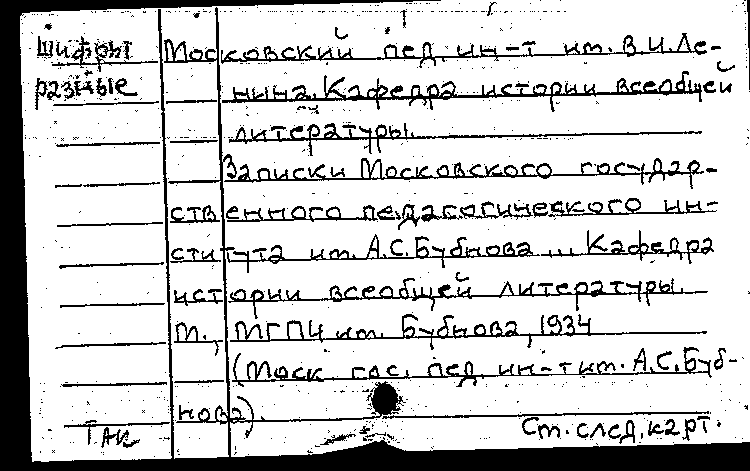 Шифры Московский пед. ин-т им. В.И.Ле-
разные нина. Кафедра истории всеобщей
литературы.
Записки Московского государ-
ственного педагогического ин-
ститута им. А.С.Бубнова ... Кафедра
истории всеобщей литературы.
М., МГПИ им. Бубнова, 1934
(Моск гос. пед. ин-т им. А.С.Буб-
нова).
См. след. карт.